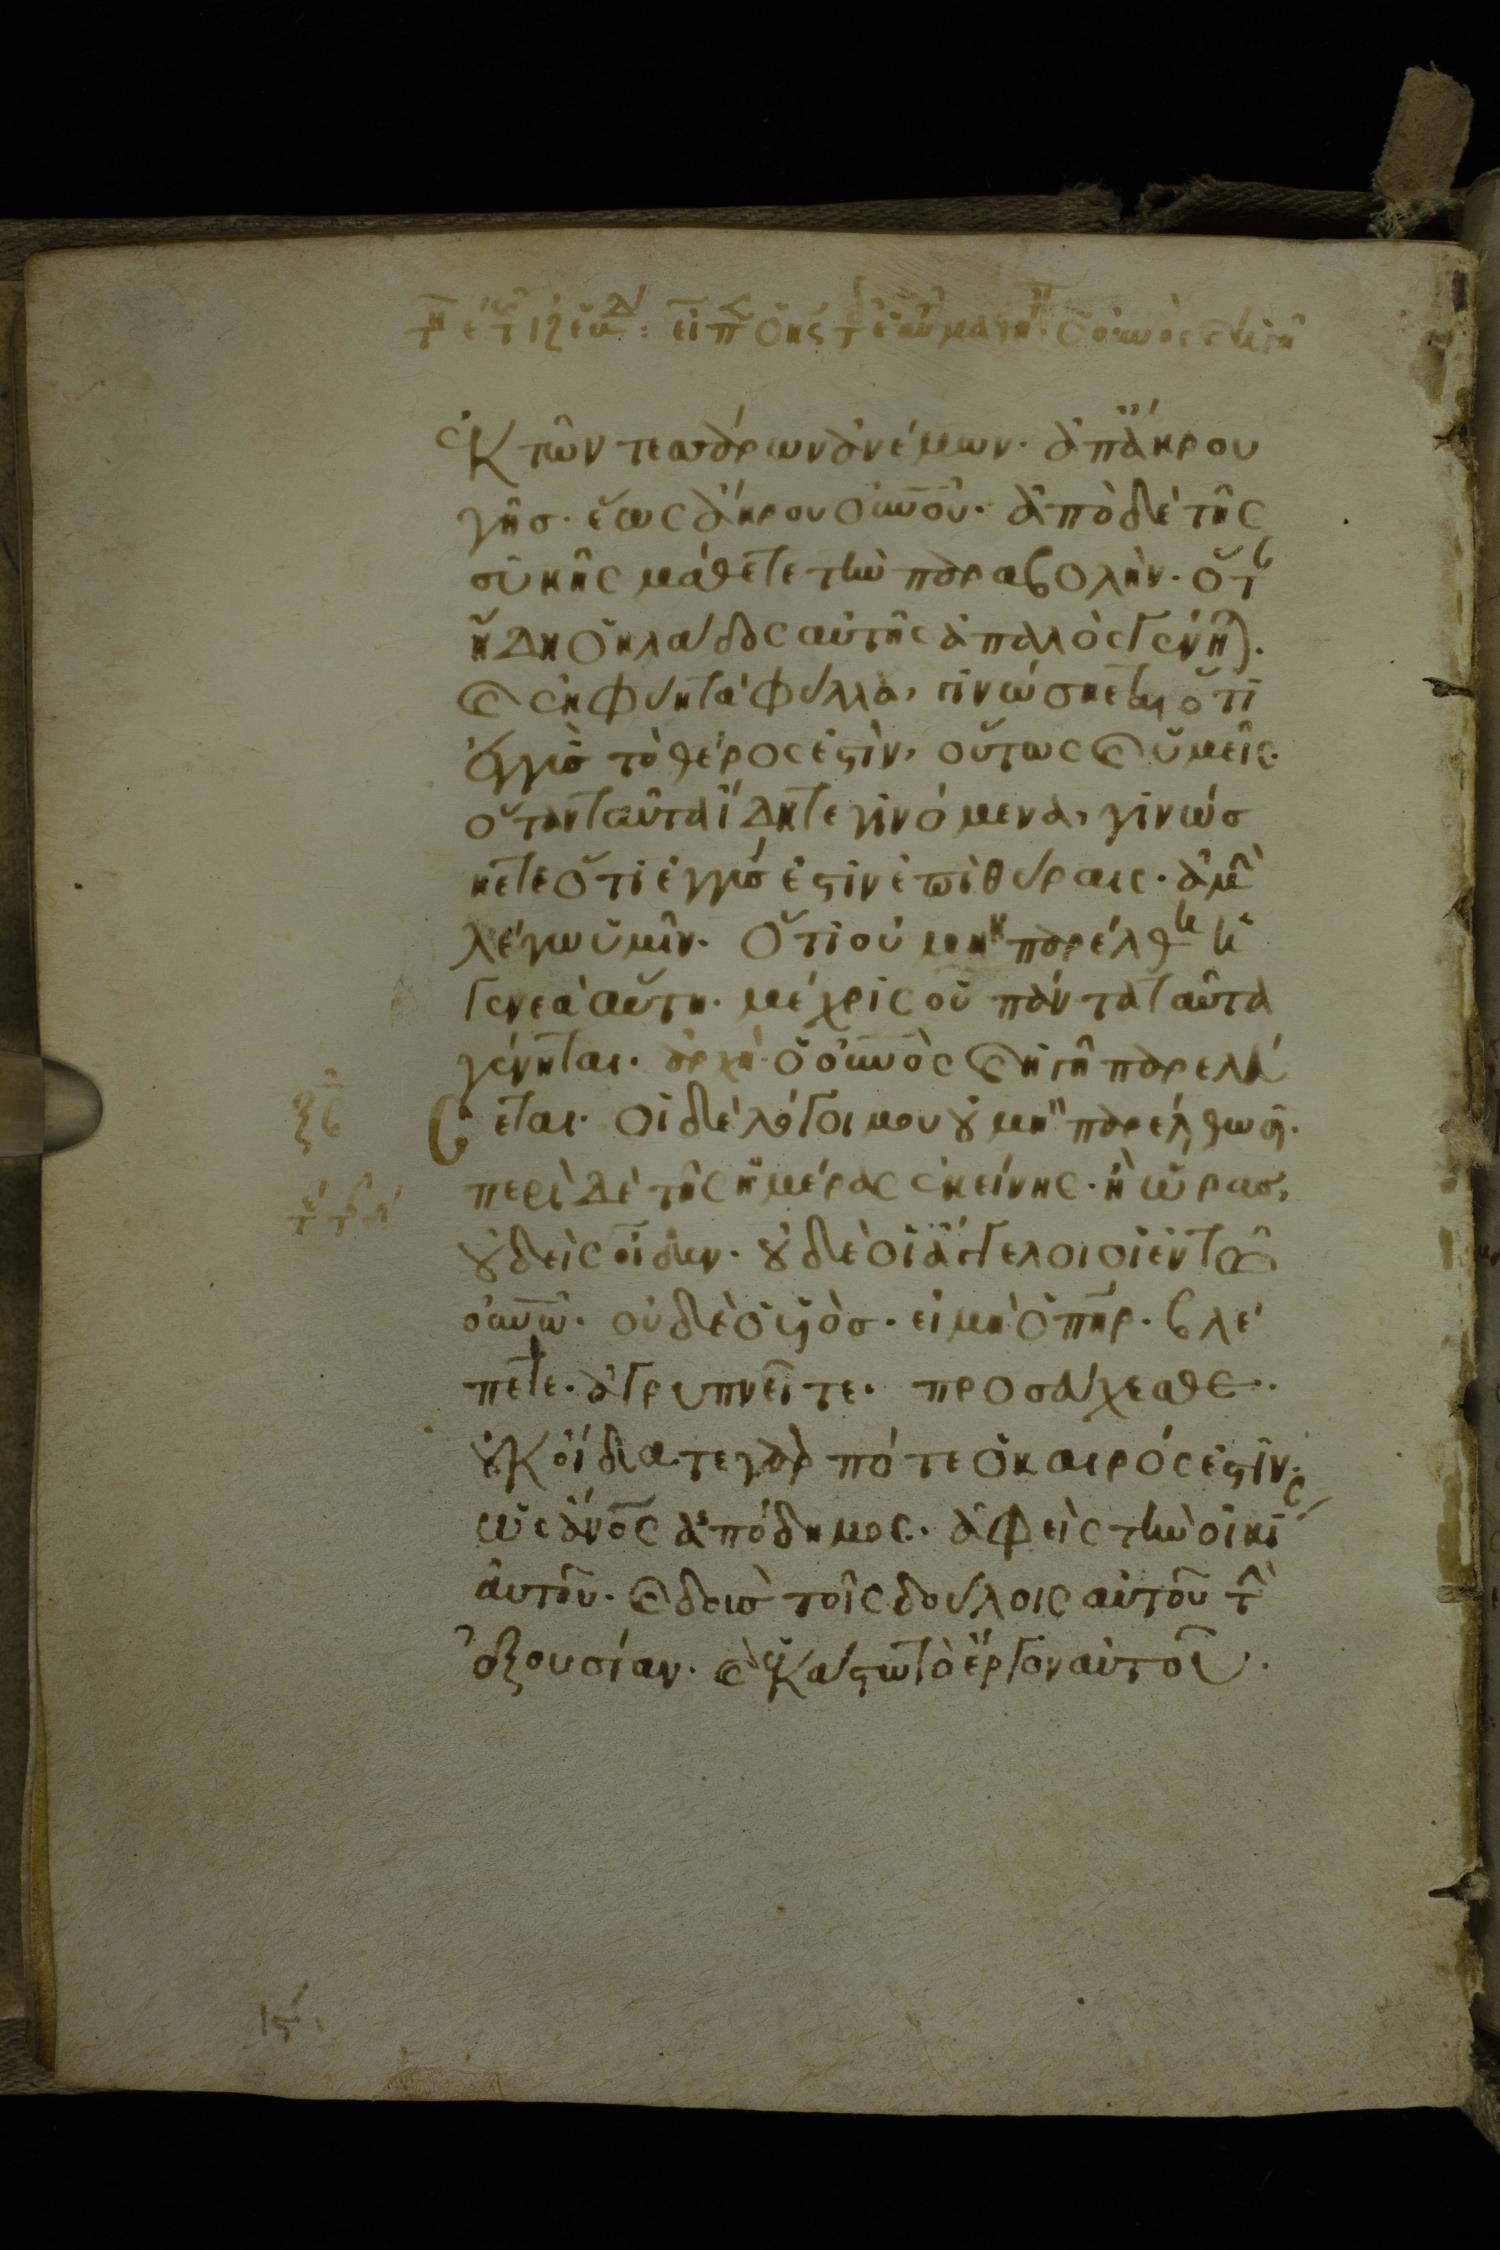 ἐκ τῶν τεσσάρων ἀνέμων· ἀπ ἄκρου
γῆσ· ἕως ἄκρου οὐνοῦ· ἀπὸ δὲ τῆς
συκῆς μάθετε τὴν παραβολὴν· ὅτ
ἤδη ὁ κλάδος αὐτῆς ἁπαλὸς γένη)·
κ ἐκφύη τὰ φύλλα, γινώσκεται ὅτι
ἐγγὺσ τὸ θέρος ἐστὶν, οὕτως κ ὑμεῖς·
ὅταν ταῦτα ἴδητε γινόμενα, γινώσ
κετε ὅτι ἐγγύσ ἐστιν ἐπὶ θύραις· ἀμὴ
λέγω ὑμῖν· ὅτι οὐ μὴ παρέλθη ἡ
γενεὰ αὕτη· μέχρις οὗ πάντα ταῦτα
γένηται· ἀρχὴ· ὁ οὐνὸς κ ἡ γῆ παρελεύ
σεται· οἱ δὲ λόγοι μου οὐ μὴ παρέλθωσι·
περὶ δὲ τῆς ἡμέρας ἐκείνης· ἢ ὥρασ,
οὐδεὶς οἶδεν· οὐδὲ οἱ ἄγγελοι οἱ ἐν τῶ
οὐνῶ· οὐδὲ ὁ υἱὸσ· εἰ μὴ ὁ πηρ· βλέ
πετε· ἀγρυπνεῖτε· προσεύχεσθε·
οὐκ οἴδατε γὰρ πότε ὁ καιρός ἐστίν·
ὡς ἄνος ἀπόδημος· ἀφεὶς τὴν οἰκί
αὐτοῦ· κ δοὺσ τοῖς δούλοις αὐτοῦ τὴ
ἐξουσίαν· κ ἑκάστω τὸ ἔργον αὐτοῦ·